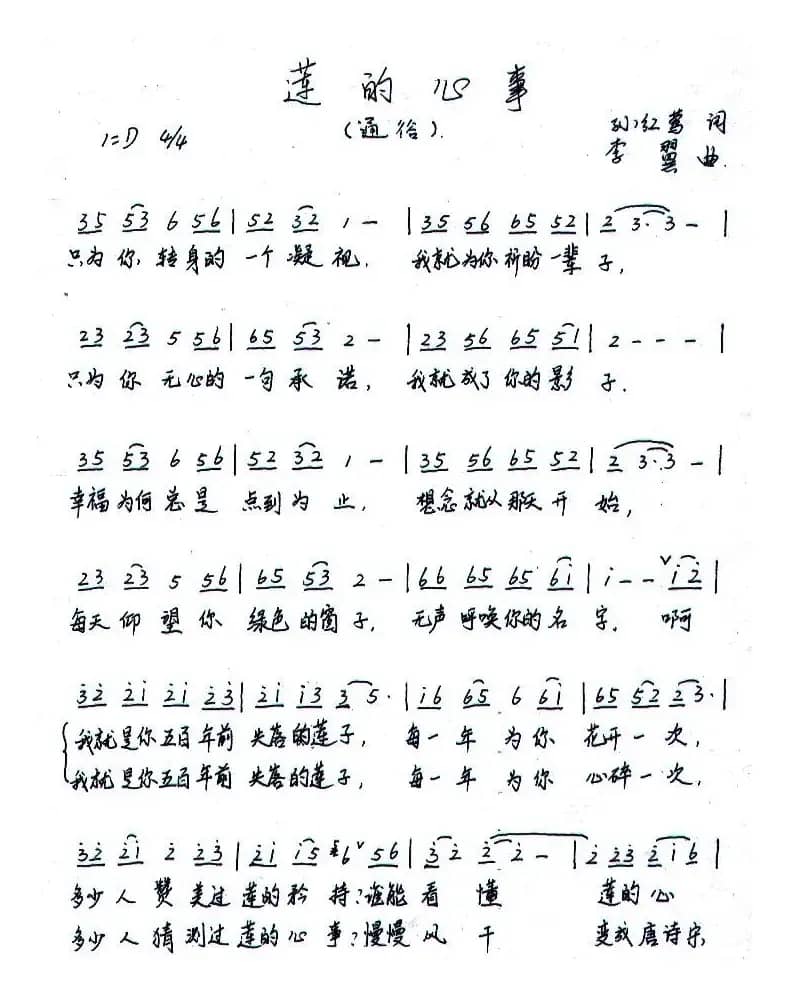 莲的心事
(通俗)
1=D 4/4
孙红莺 词
李翼 曲
35 53 6 56 | 52 32 1 — | 35 56 65 52 | 2 3·3 — |
只为你,转身的一个凝视, 我就为你祈盼一辈子,
23 23 5 56 | 65 53 2 — | 23 56 65 51 | 2 - - - |
只为你无心的一句承诺, 我就成了你的影子.
35 53 6 56 | 52 32 1 — | 35 56 65 52 | 2 3·3 — |
幸福为何总是点到为止, 想念就从那天开始,
23 23 5 56 | 65 53 2 — | 66 65 65 6i | i - - ∨i2̇ |
每天仰望你绿色的窗子, 无声呼唤你的名字. 啊
3̇2̇ 2̇i 2̇i 2̇3̇ | 2̇i i3 3 5· | i6 65 6 6i | 65 52 23· |
我就是你五百年前失落的莲子, 每一年为你花开一次,
我就是你五百年前失落的莲子, 每一年为你心碎一次,
3̇2̇ 2̇i 2̇ 2̇3̇ | 2̇i i5 6∨ 56 | 3̇2̇ 2̇·2̇ — | 2̇ 2̇3̇ 2̇i6 |
多少人赞美过莲的矜持?谁能看懂 莲的心
多少人猜测过莲的心事?慢慢风干 变成唐诗宋